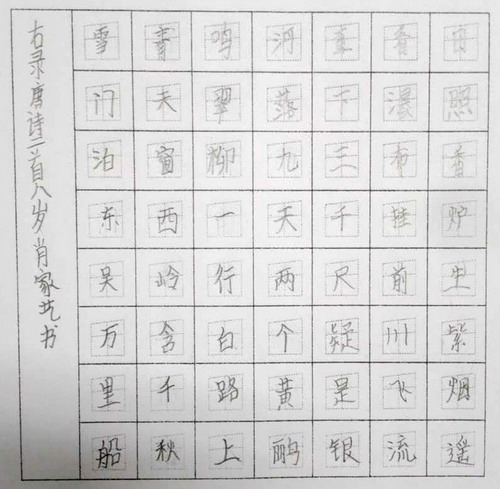 日照香炉生紫烟遥
看瀑布挂前川飞流
直下三千尺疑是银
河落九天两个黄鹂
鸣翠柳一行白路上
青天窗西岭含千秋
雪门泊东吴万里船
右录唐诗二首八岁肖家艺书